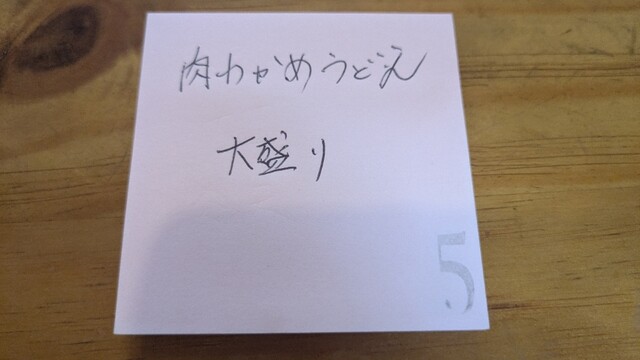 肉わかめうどん
大盛り
5